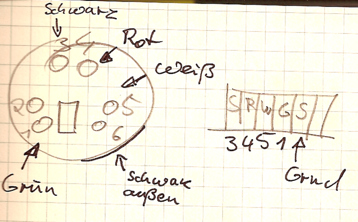 Schwarz
3 4
Rot
Weiß
2
5
1
6
Grün
Schwarz
außen
S R W G S
3 4 5 1
Grund